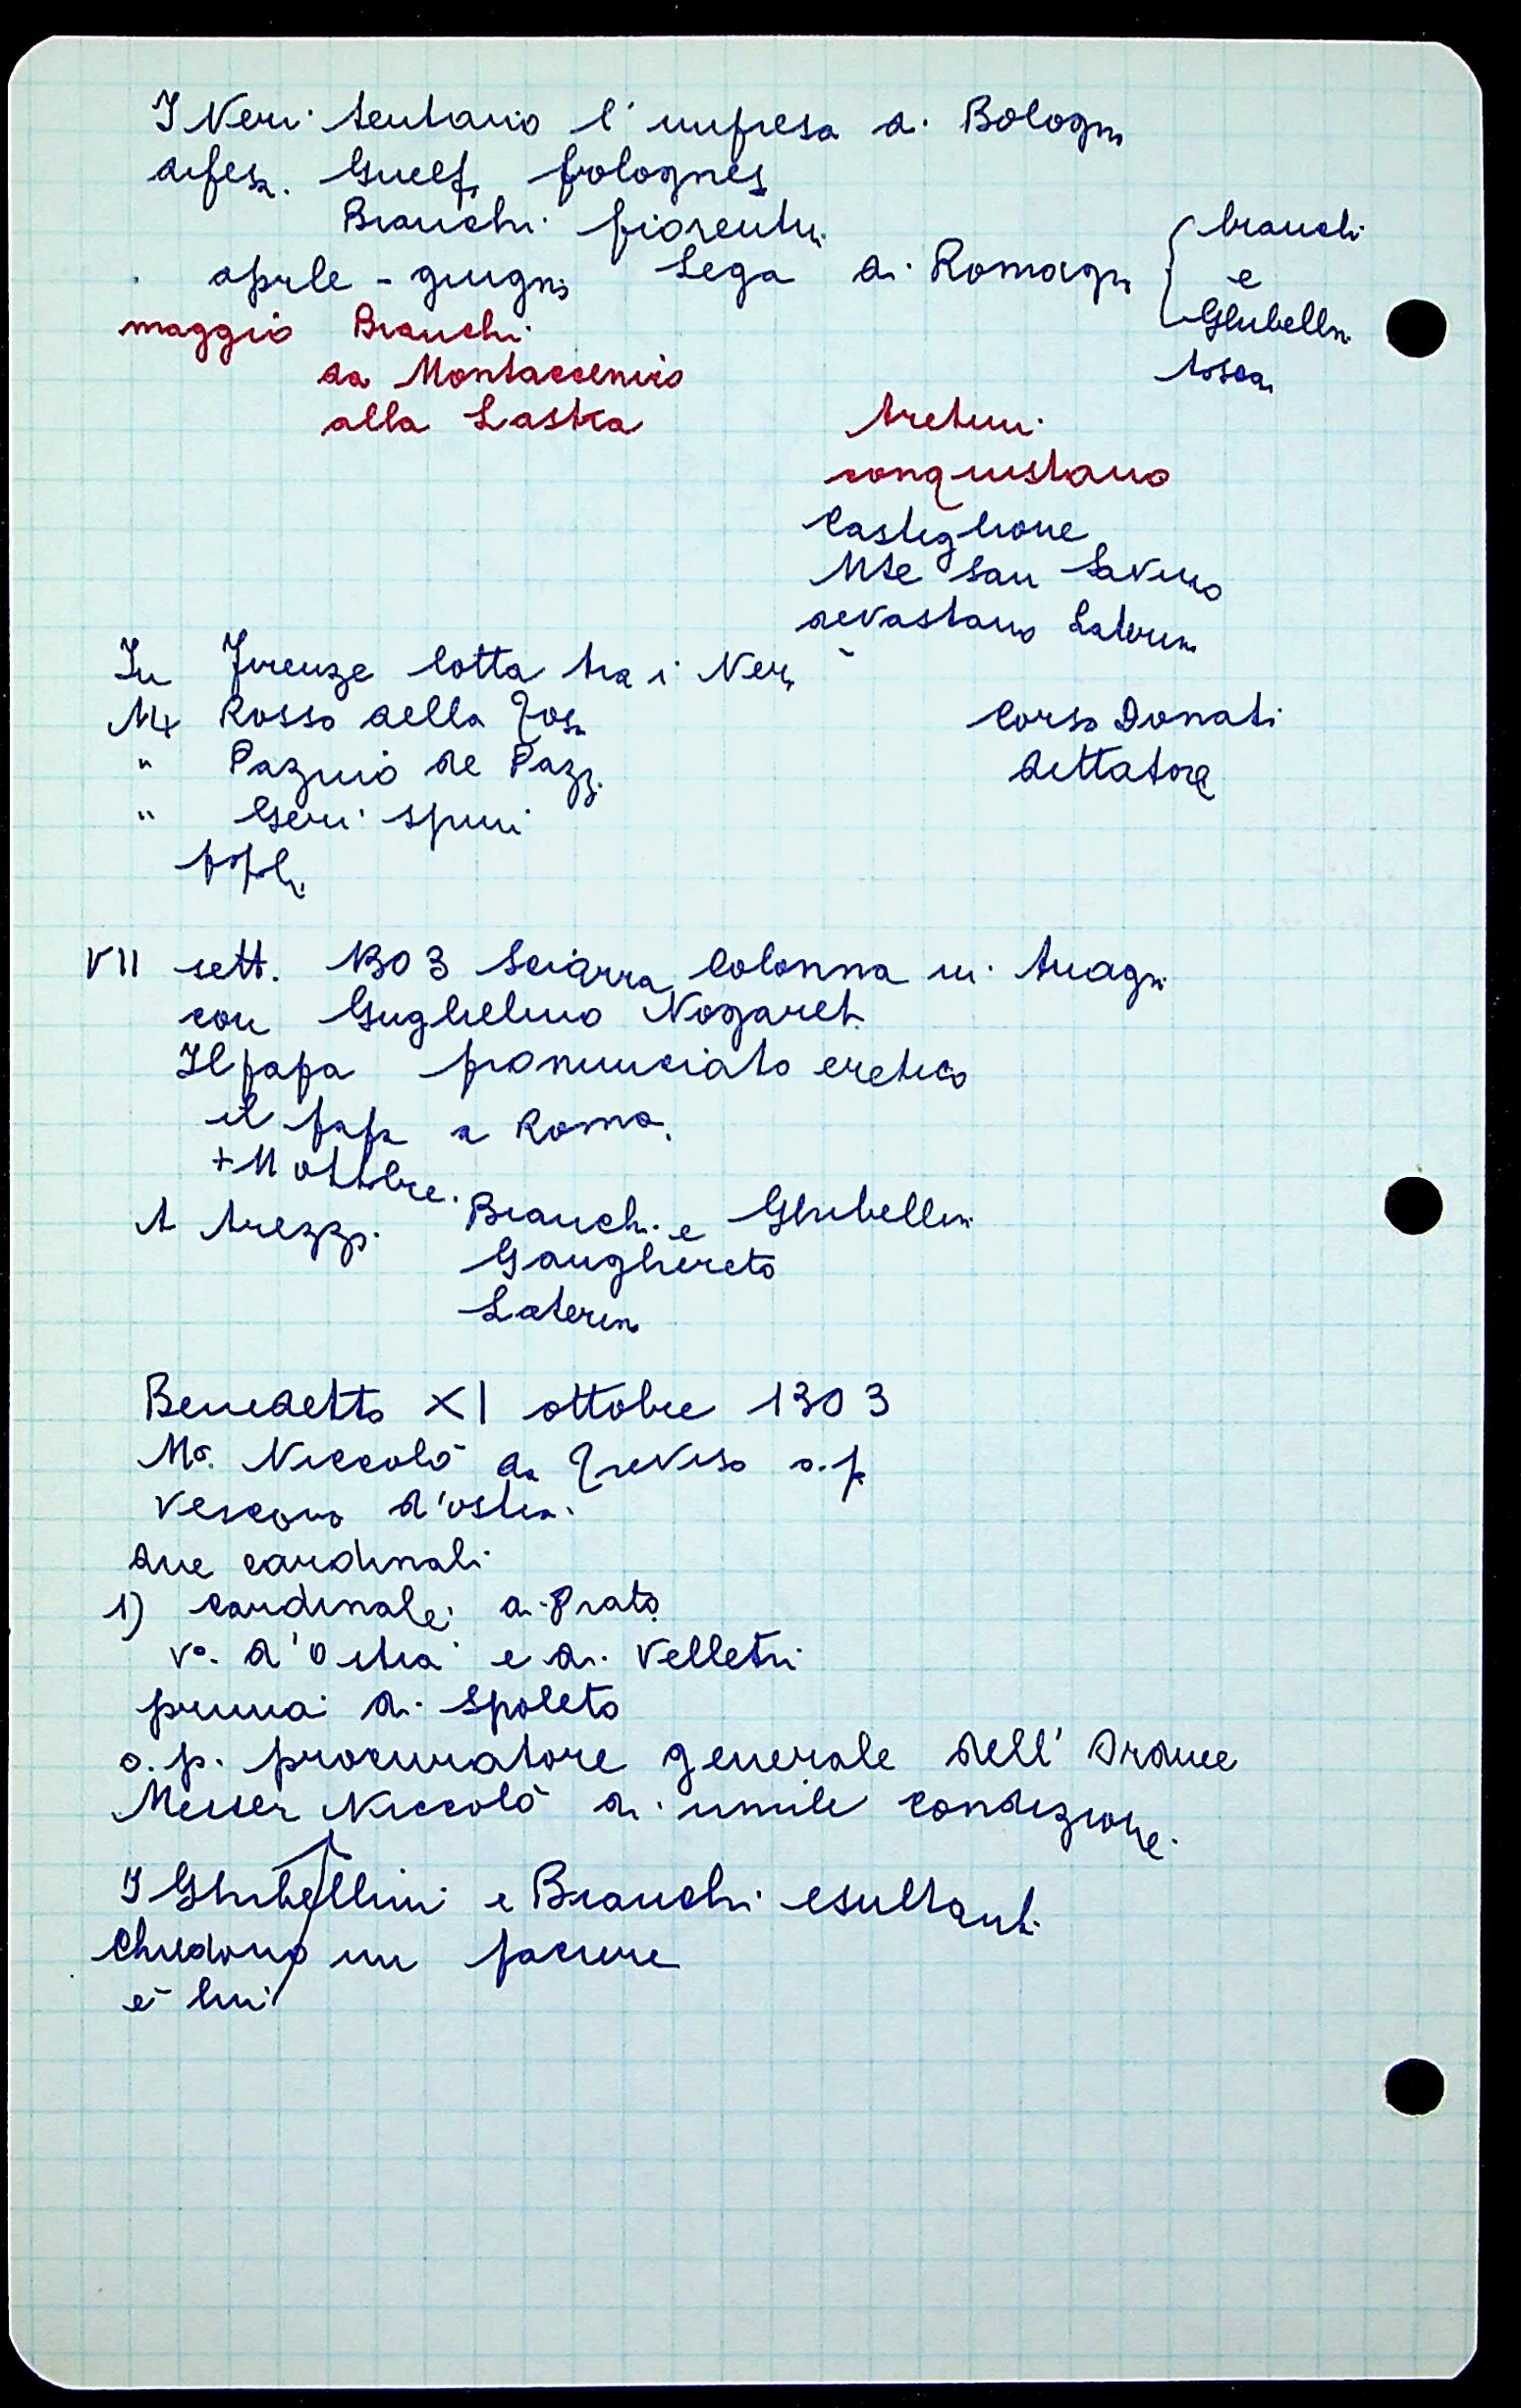 I Neri tentano l'impresa di Bologna
difesa. Guelfi bolognesi
Bianchi fiorentini
aprile - giugno Lega di Romagna { bianchi
e
Ghibellini
tosca
maggio Bianchi
da Montaccenico
alla Lastra
Aretini
conquistano
Castiglione
Mte San Savino
devastano Laterino
In Firenze lotta tra i Neri
Mr Rosso della Tosa Corso Donati
" Pazzino de Pazzi dittatore
" Geri Spini
popoli
VII sett. 1303 Sciarra Colonna in Anagni
con Guglielmo Nogaret
Il papa pronunciato eretico
il papa a Roma.
+ 11 ottobre.
A Arezzo. Bianchi e Ghibellini
Ganghereto
Laterino
Benedetto XI ottobre 1303
Mo. Niccolò da Treviso o.p
Vescovo d'Ostia.
due cardinali
1) cardinale di Prato
vo. d'Ostia e di Velletri
prima di Spoleto
o.p. procuratore generale dell'Ordine
Messer Niccolò di umile condizione.
I Ghibellini e Bianchi esultanti
Chiedono un paciere
è lui